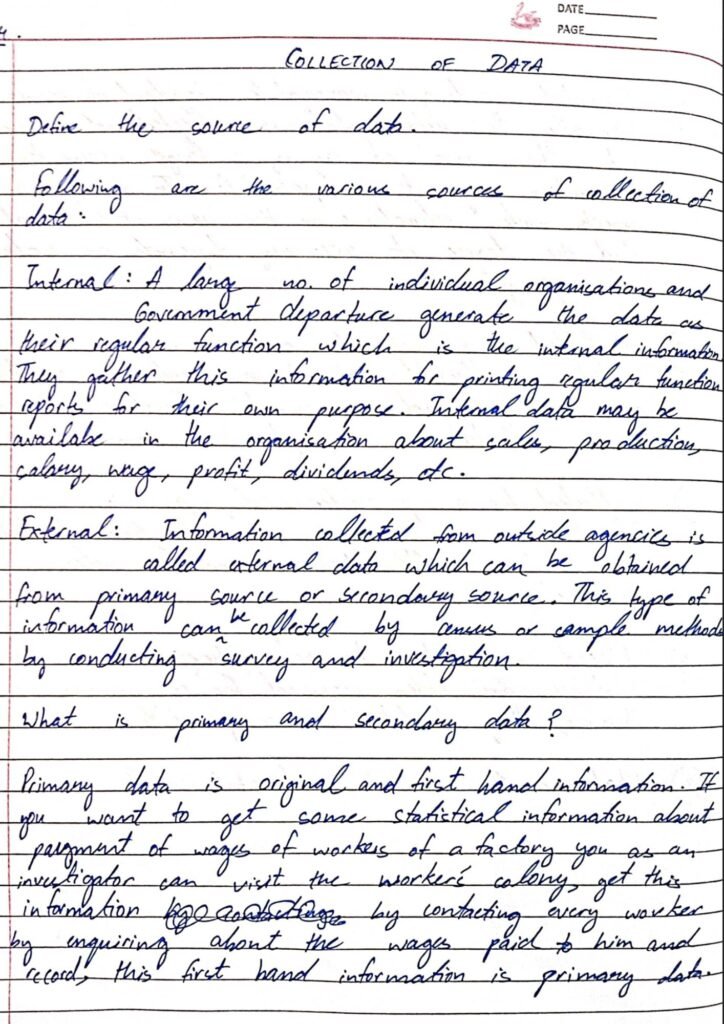 DATE
PAGE
4.
COLLECTION OF DATA
Define the source of data.
Following are the various sources of collection of
data:
Internal: A large no. of individual organisations and
Government departure generate the data as
their regular function which is the internal information
They gather this information for printing regular function
reports for their own purpose. Internal data may be
availabe in the organisation about sales, production,
salary, wage, profit, dividends, etc.
External: Information collected from outside agencies is
called external data which can be obtained
from primary source or secondary source. This type of
information can be collected by census or sample methods
by conducting survey and investigation.
What is primary and secondary data?
Primary data is original and first hand information. If
you want to get some statistical information about
payment of wages of workers of a factory you as an
investigator can visit the worker's colony, get this
information by contacting every worker
by enquiring about the wages paid to him and
record, this first hand information is primary data.